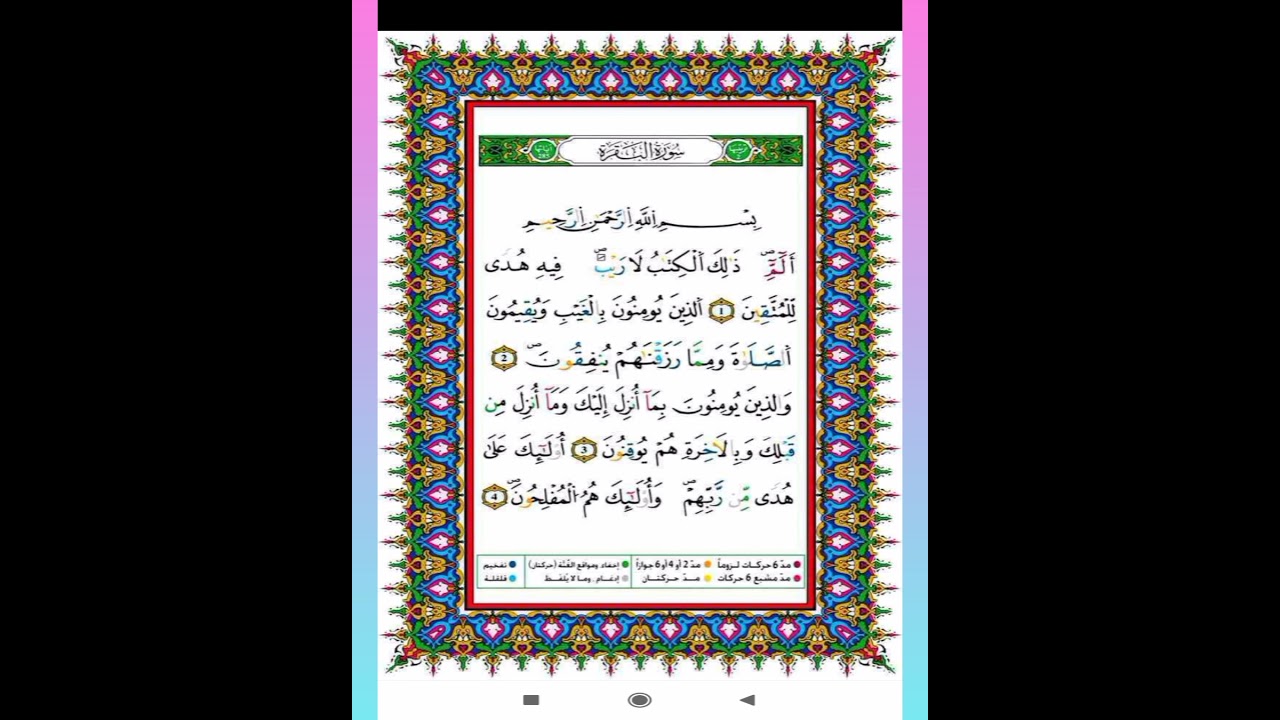 ترتيبها 2 سُورَةُ الْبَقَرَةِ آياتها 285
بِسْمِ اِ۬للَّهِ اِ۬لرَّحْمَٰنِ اِ۬لرَّحِيمِ
أَلَٓمِّٓۖ ذَٰلِكَ اَ۬لْكِتَٰبُ لَا رَيْبَۖ فِيهِ هُدىٗ
لِّلْمُتَّقِينَ 1 اَ۬لذِينَ يُومِنُونَ بِالْغَيْبِ وَيُقِيمُونَ
اَ۬لصَّلَوٰةَ وَمِمَّا رَزَقْنَٰهُمْ يُنفِقُونَۖ 2
وَالذِينَ يُومِنُونَ بِمَآ أُنزِلَ إِلَيْكَ وَمَآ أُنزِلَ مِن
قَبْلِكَ وَبِالَاخِرَةِ هُمْ يُوقِنُونَ 3 أُوْلَٰٓئِكَ عَلَىٰ
هُدىٗ مِّن رَّبِّهِمْۖ وَأُوْلَٰٓئِكَ هُمُ اُ۬لْمُفْلِحُونَۖ 4
مدّ 6 حركات لزوماً مدّ 2 أو 4 أو 6 جوازاً إخفاء ومواقع الغُنّة (حركتان) تفخيم
مدّ مشبع 6 حركات مدّ حركتان إدغام وما لا يُلفظ قلقلة